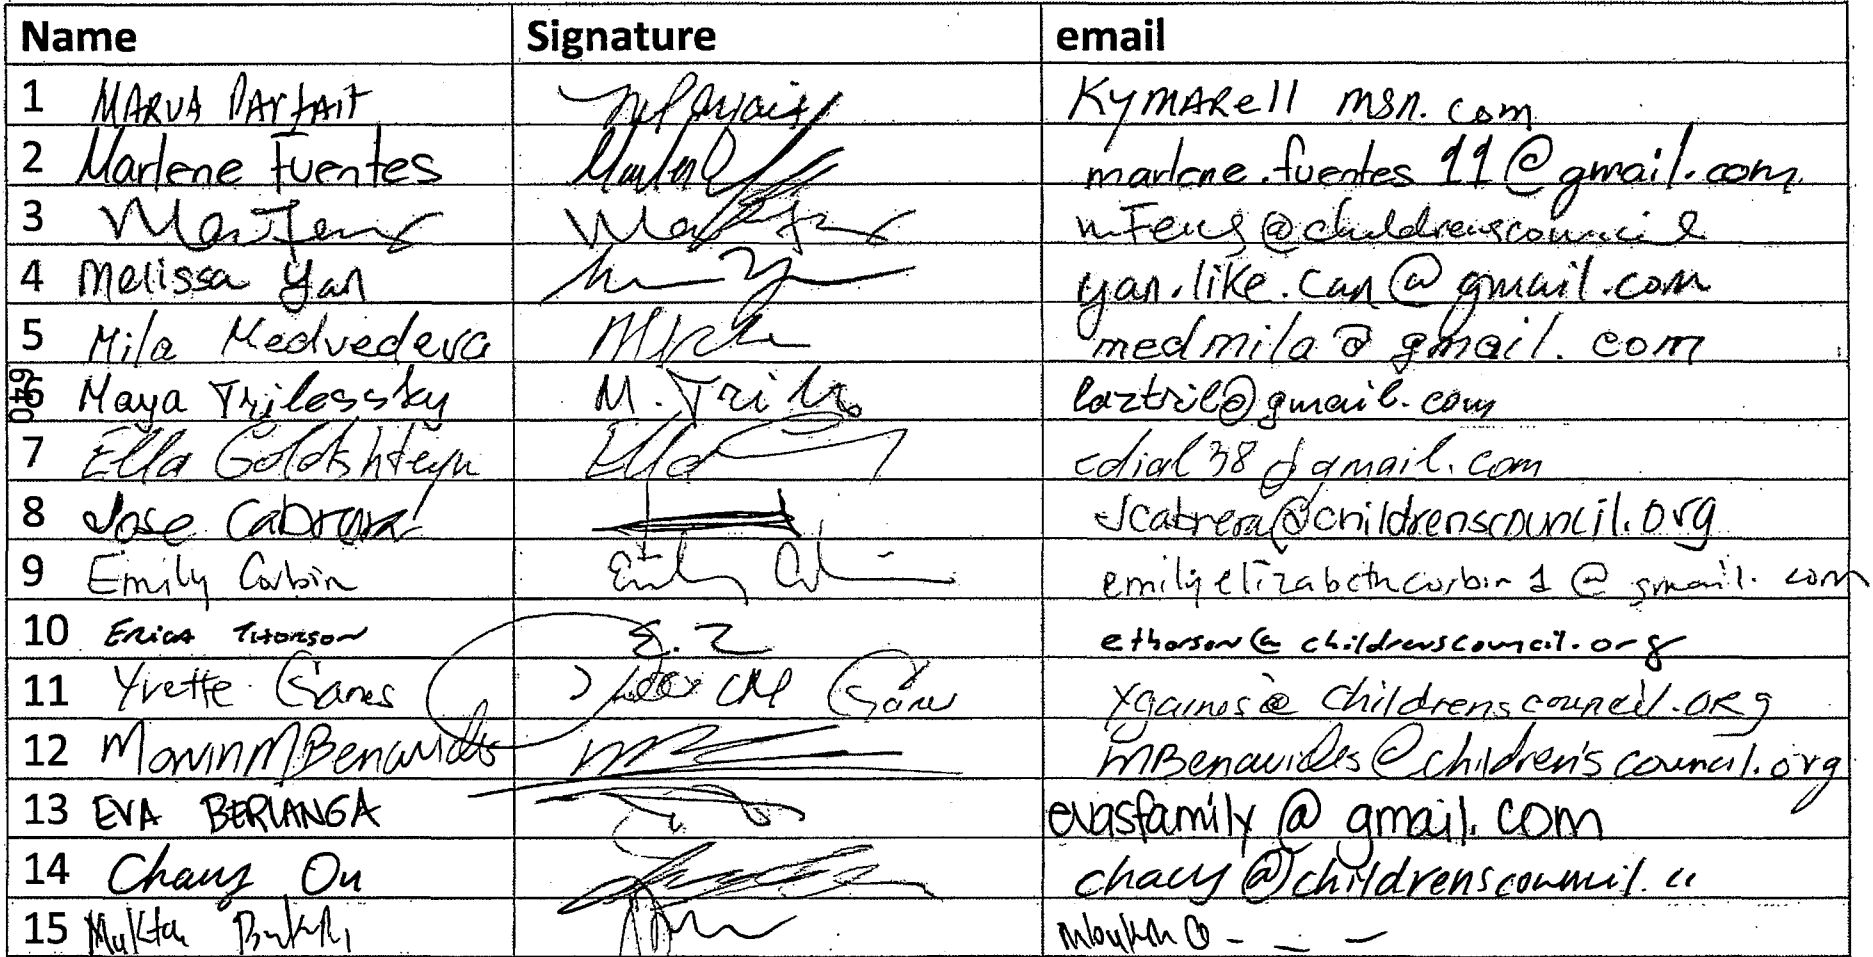 Name Signature email
1 MARVA PARFAIT KyMARell msn.com
2 Marlene Fuentes marlene.fuentes 11@gmail.com
3 @childrenscouncil
4 Melissa Yan yan.like.can@gmail.com
5 Mila Medvedeva medmila@gmail.com
6 Maya Trilessky M. Tril laztril@gmail.com
640
7 Ella Goldshteyn Ella edial38@gmail.com
8 Jose Cabrera Jcabrera@childrenscouncil.org
9 Emily Corbin Emily emilyelizabethcorbin1@gmail.com
10 ERICA THORSON ethorson@childrenscouncil.org
11 Yvette Gaines childrenscouncil.org
12 MBenavides MBenavides@children'scouncil.org
13 EVA BERLANGA evasfamily@gmail.com
14 Chacy Ou chacy@childrenscouncil. "
15 Mukta